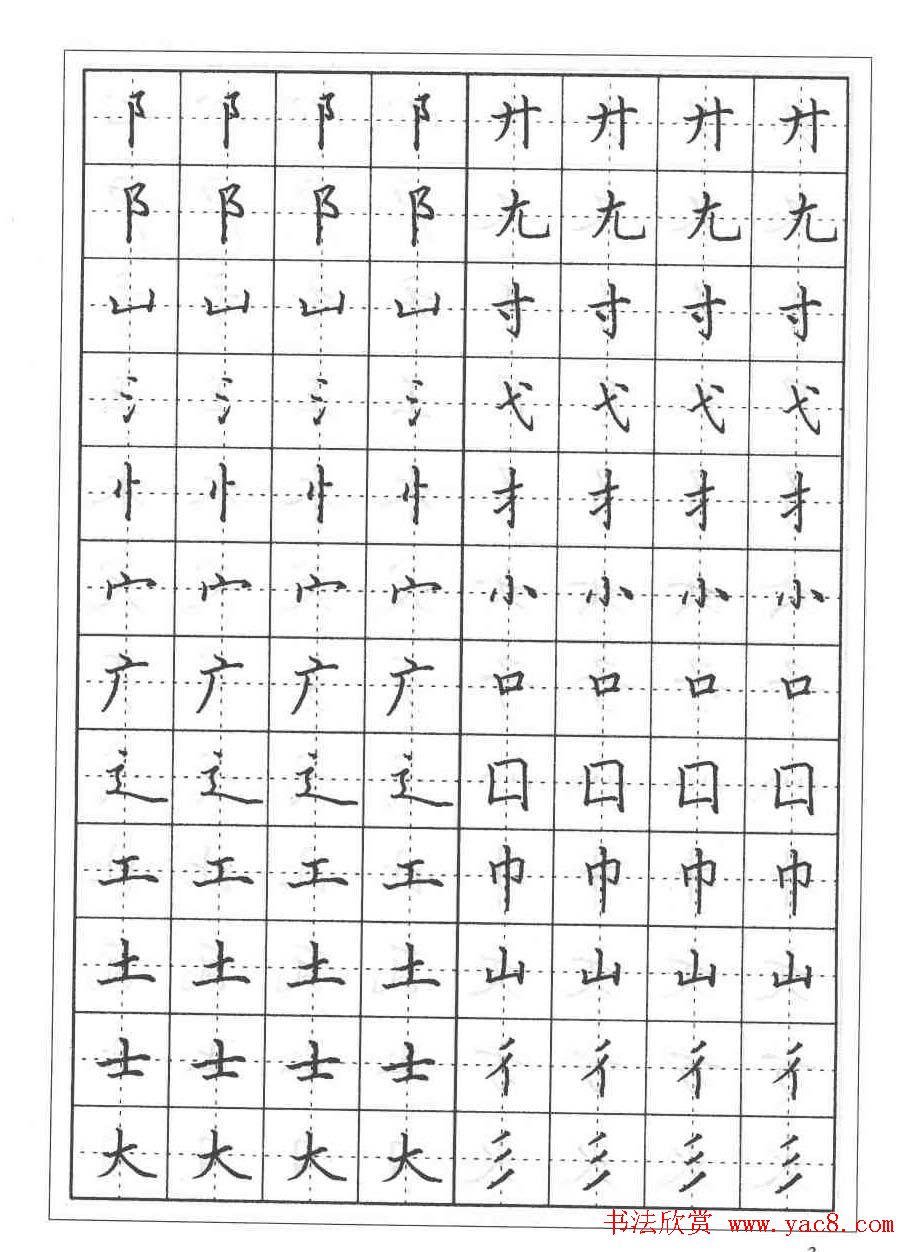 阝 阝 阝 阝 廾 廾 廾 廾
阝 阝 阝 阝 尢 尢 尢 尢
凵 凵 凵 凵 寸 寸 寸 寸
氵 氵 氵 氵 弋 弋 弋 弋
忄 忄 忄 忄 扌 扌 扌 扌
宀 宀 宀 宀 小 小 小 小
广 广 广 广 口 口 口 口
辶 辶 辶 辶 囗 囗 囗 囗
工 工 工 工 巾 巾 巾 巾
土 土 土 土 山 山 山 山
士 士 士 士 彳 彳 彳 彳
大 大 大 大 彡 彡 彡 彡
书法欣赏 www.yac8.com